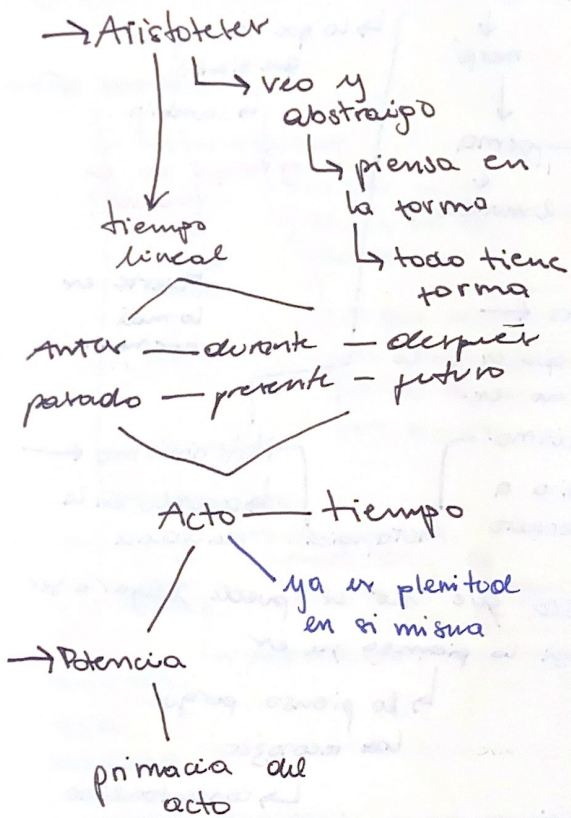 → Aristoteles
↳ veo y
abstraigo
↳ piensa en
la forma
↳ todo tiene
forma
tiempo
lineal
Antes — durante — después
pasado — presente — futuro
Acto — tiempo
ya es plenitud
en si misma
→ Potencia
primacia del
acto